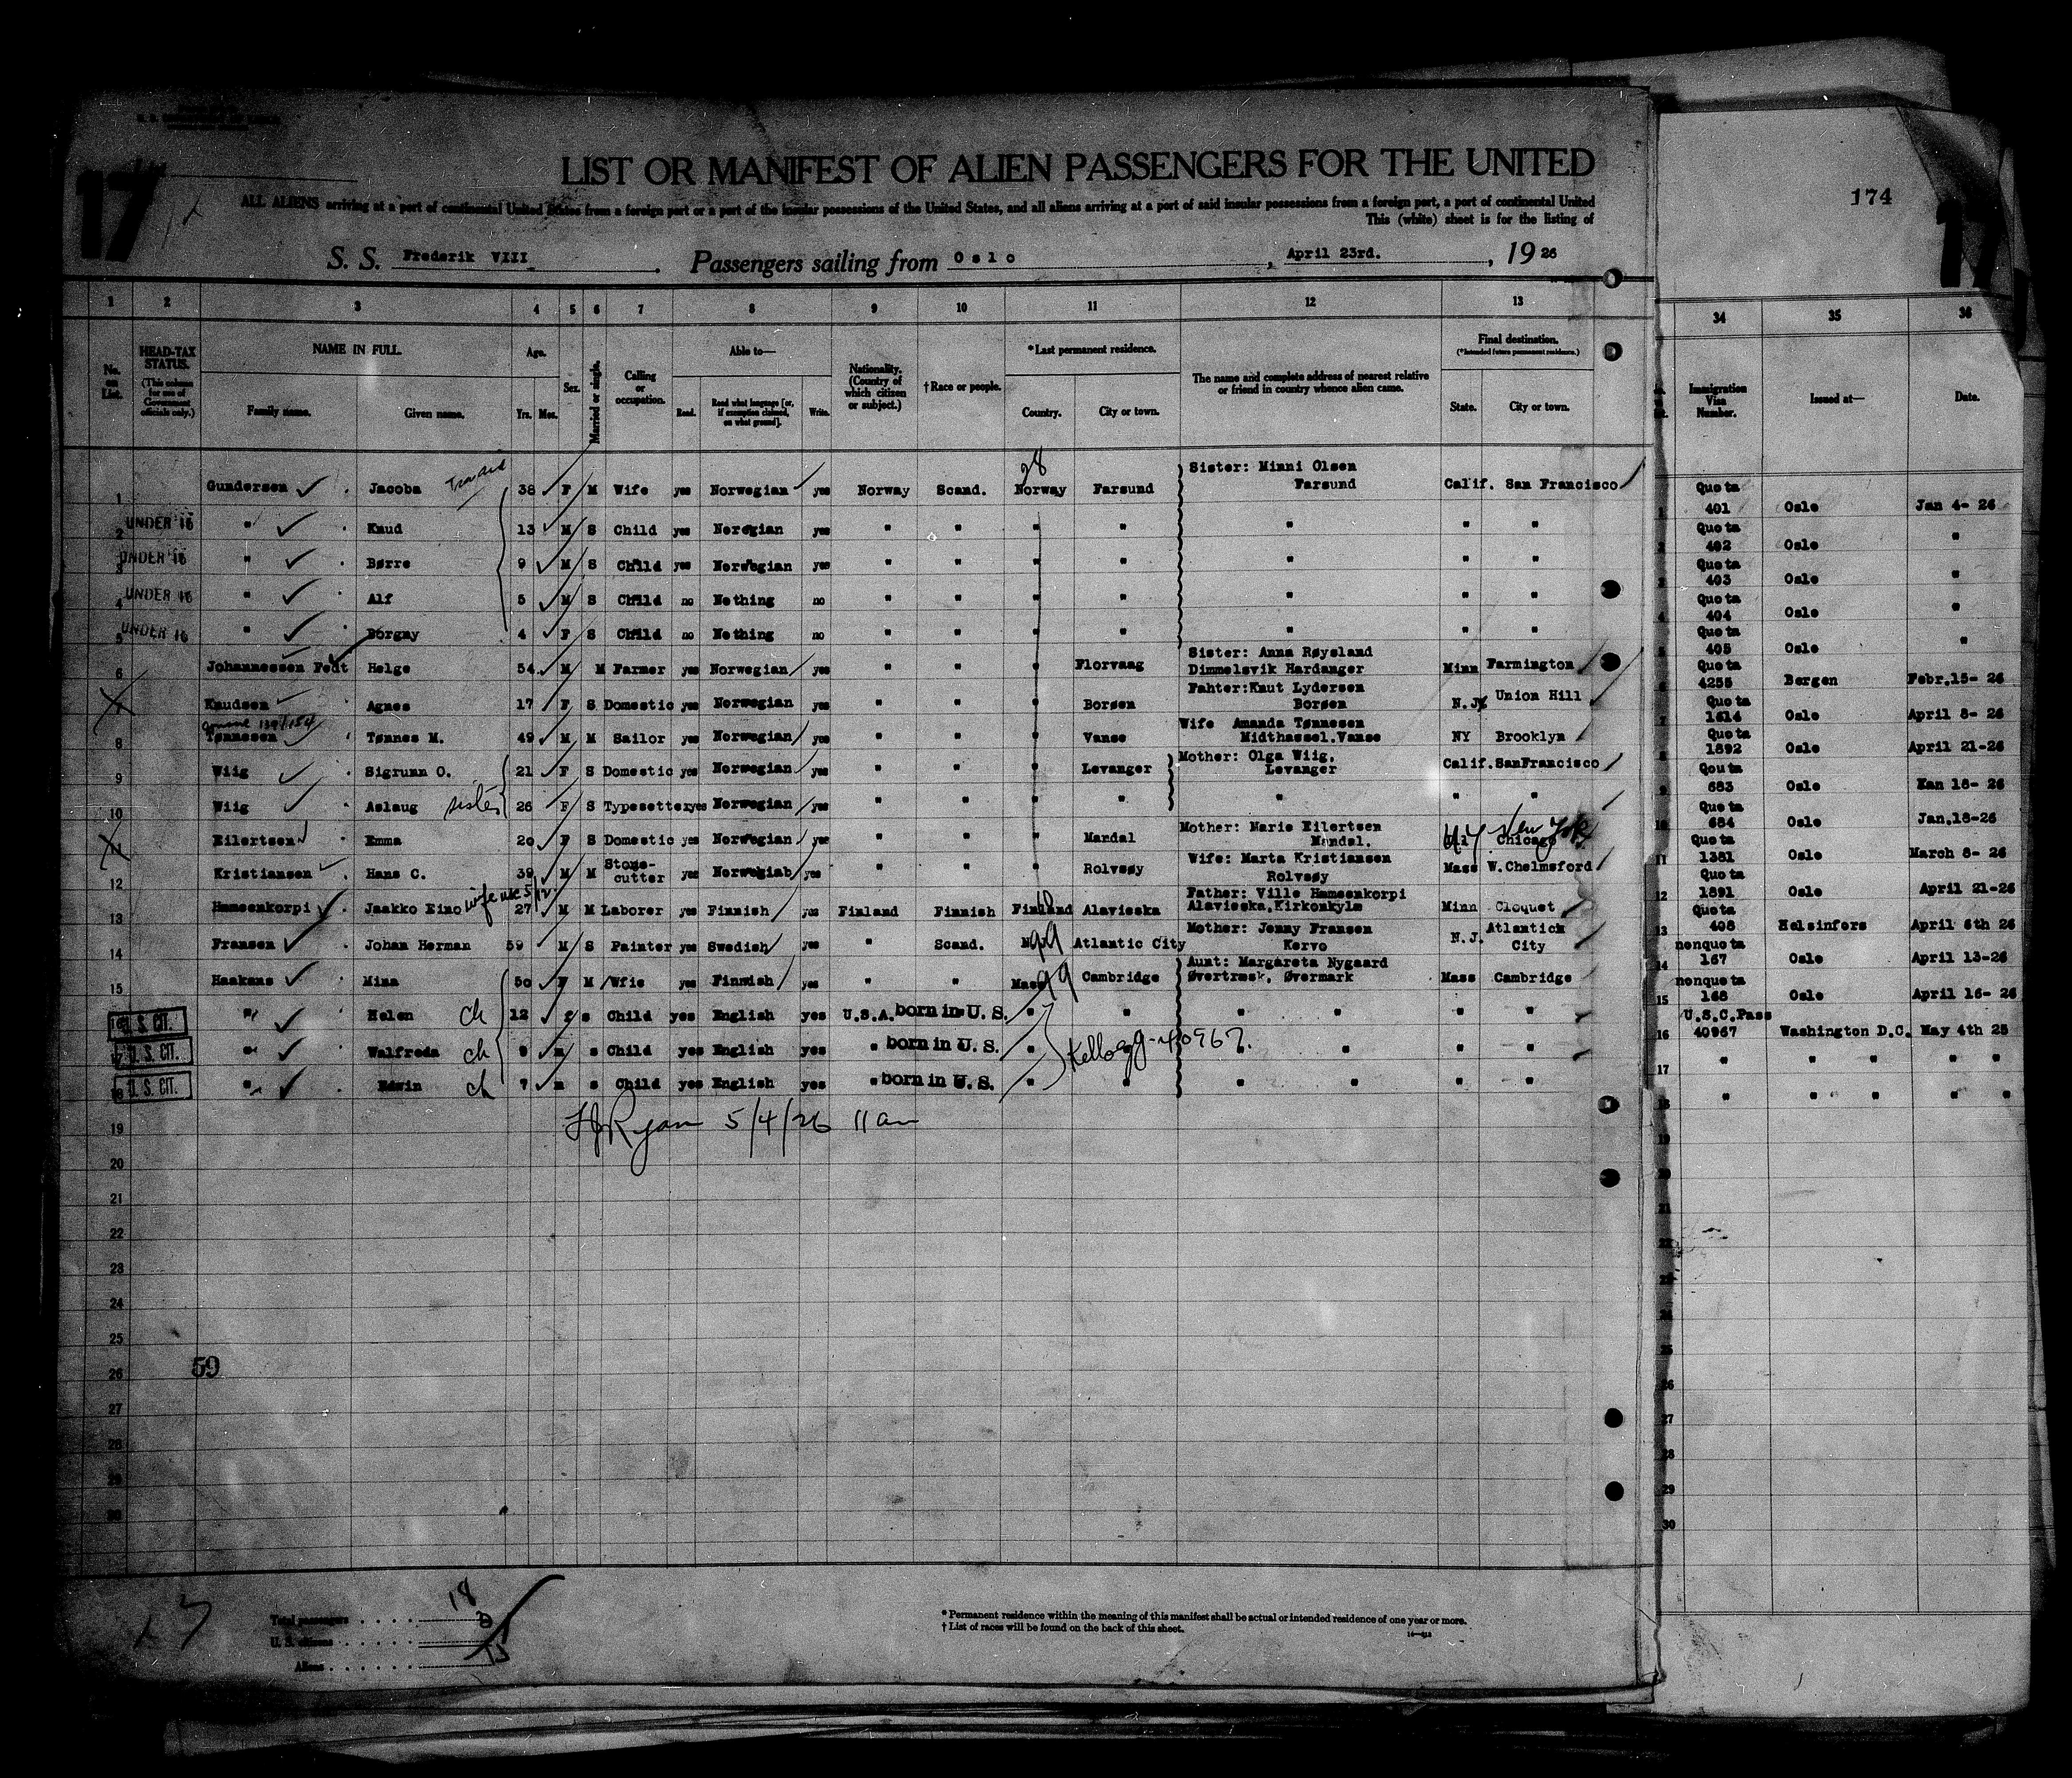 174
17
17
LIST OR MANIFEST OF ALIEN PASSENGERS FOR THE UNITED
ALL ALIENS arriving at a port of continental United States from a foreign port or a port of the insular possessions of the United States, and all aliens arriving at a port of said insular possessions from a foreign port, a port of continental United
This (white) sheet is for the listing of
S. S. Frederik VIII. Passengers sailing from Oslo, April 23rd., 1926
1 2 3 4 5 6 7 8 9 10 11 12 13 34 35 36
No. on List.
HEAD-TAX STATUS. (This column for use of Government officials only.)
NAME IN FULL.
Family name. Given name.
Age. Yrs. Mos.
Sex.
Married or single.
Calling or occupation.
Able to—
Read. Read what language [or, if exemption claimed, on what ground]. Write.
Nationality. (Country of which citizen or subject.)
† Race or people.
*Last permanent residence.
Country. City or town.
The name and complete address of nearest relative or friend in country whence alien came.
Final destination.
(*Intended future permanent residence.)
State. City or town.
Immigration Visa Number.
Issued at—
Date.
1 Gundersen Jacoba 38 F M Wife yes Norwegian yes Norway Scand. 28 Norway Farsund Sister: Minni Olsen Farsund Calif. San Francisco Quota 401 Oslo Jan 4- 26
2 UNDER 16 " Knud 13 M S Child yes Noregian yes " " " " " " " Quota 402 Oslo "
3 UNDER 16 " Børre 9 M S Child yes Norwegian yes " " " " " " " Quota 403 Oslo "
4 UNDER 16 " Alf 5 M S Child no Nothing no " " " " " " " Quota 404 Oslo "
5 UNDER 16 " Borgny 4 F S Child no Nothing no " " " " " " " Quota 405 Oslo "
6 Johannessen Fedt Helge 54 M M Farmer yes Norwegian yes " " " Florvaag Sister: Anna Røysland Dimmelsvik Hardanger Minn Farmington Quota 4255 Bergen Febr.15- 26
7 Knudsen Agnes 17 F S Domestic yes Norwegian yes " " " Borsen Fahter:Knut Lydersen Borsen N.J. Union Hill Quota 1614 Oslo April 8- 26
8 Tønnesen Tønnes M. 49 M M Sailor yes Norwegian yes " " " Vanse Wife Amanda Tønnesen Midthassel.Vanse NY Brooklyn Quota 1892 Oslo April 21-26
9 Wiig Sigrunn O. 21 F S Domestic yes Norwegian yes " " " Levanger Mother: Olga Wiig, Levanger Calif. SanFrancisco Qouta 683 Oslo Kan 18- 26
10 Wiig Aslaug sister 26 F S Typesetter yes Norwegian yes " " " " " " " Quota 684 Oslo Jan.18-26
11 Eilertsen Emma 20 F S Domestic yes Norwegian yes " " " Mandal Mother: Marie Eilertsen Mandal. NY New York Chicago Quota 1381 Oslo March 8- 26
12 Kristiansen Hans C. 39 M M Stone-cutter yes Norwegiab yes " " " Rolvsøy Wife: Marta Kristiansen Rolvsøy Mass W.Chelmsford Quota 1891 Oslo April 21-26
13 Hameenkorpi Jaakko Eino 27 M M Laborer yes Finnish yes Finland Finnish Finland Alavieska Father: Ville Hameenkorpi Alavieska,Kirkonkyla Minn Cloquet Quota 408 Helsinfors April 6th 26
14 Fransen Johan Herman 59 M S Painter yes Swedish yes " Scand. 99 Atlantic City Mother: Jenny Fransen Kervo N.J. Atlantich City nonquota 167 Oslo April 13-26
15 Haakans Mina 50 F M Wfie yes Finnish yes " " Mass 99 Cambridge Aunt: Margareta Nygaard Øvertræsk, Øvermark Mass Cambridge nonquota 168 Oslo April 16- 26
16 U. S. CIT. " Helen ch 12 f s Child yes English yes U.S.A. born in U. S. " " " " " " U.S.C.Pass 40967 Washington D.C. May 4th 25
17 U. S. CIT. " Walfreda ch 9 m s Child yes English yes " born in U. S. Kellogg-40967. " " " " " " " " "
18 U. S. CIT. " Edwin ch 7 m s Child yes English yes " born in U. S. " " " " " " " " " " "
19
FJRyan 5/4/26 11am
20
21
22
23
24
25
26
59
27
28
29
30
Total passengers 18
U. S. citizens 3
Aliens 15
* Permanent residence within the meaning of this manifest shall be actual or intended residence of one year or more.
† List of races will be found on the back of this sheet.